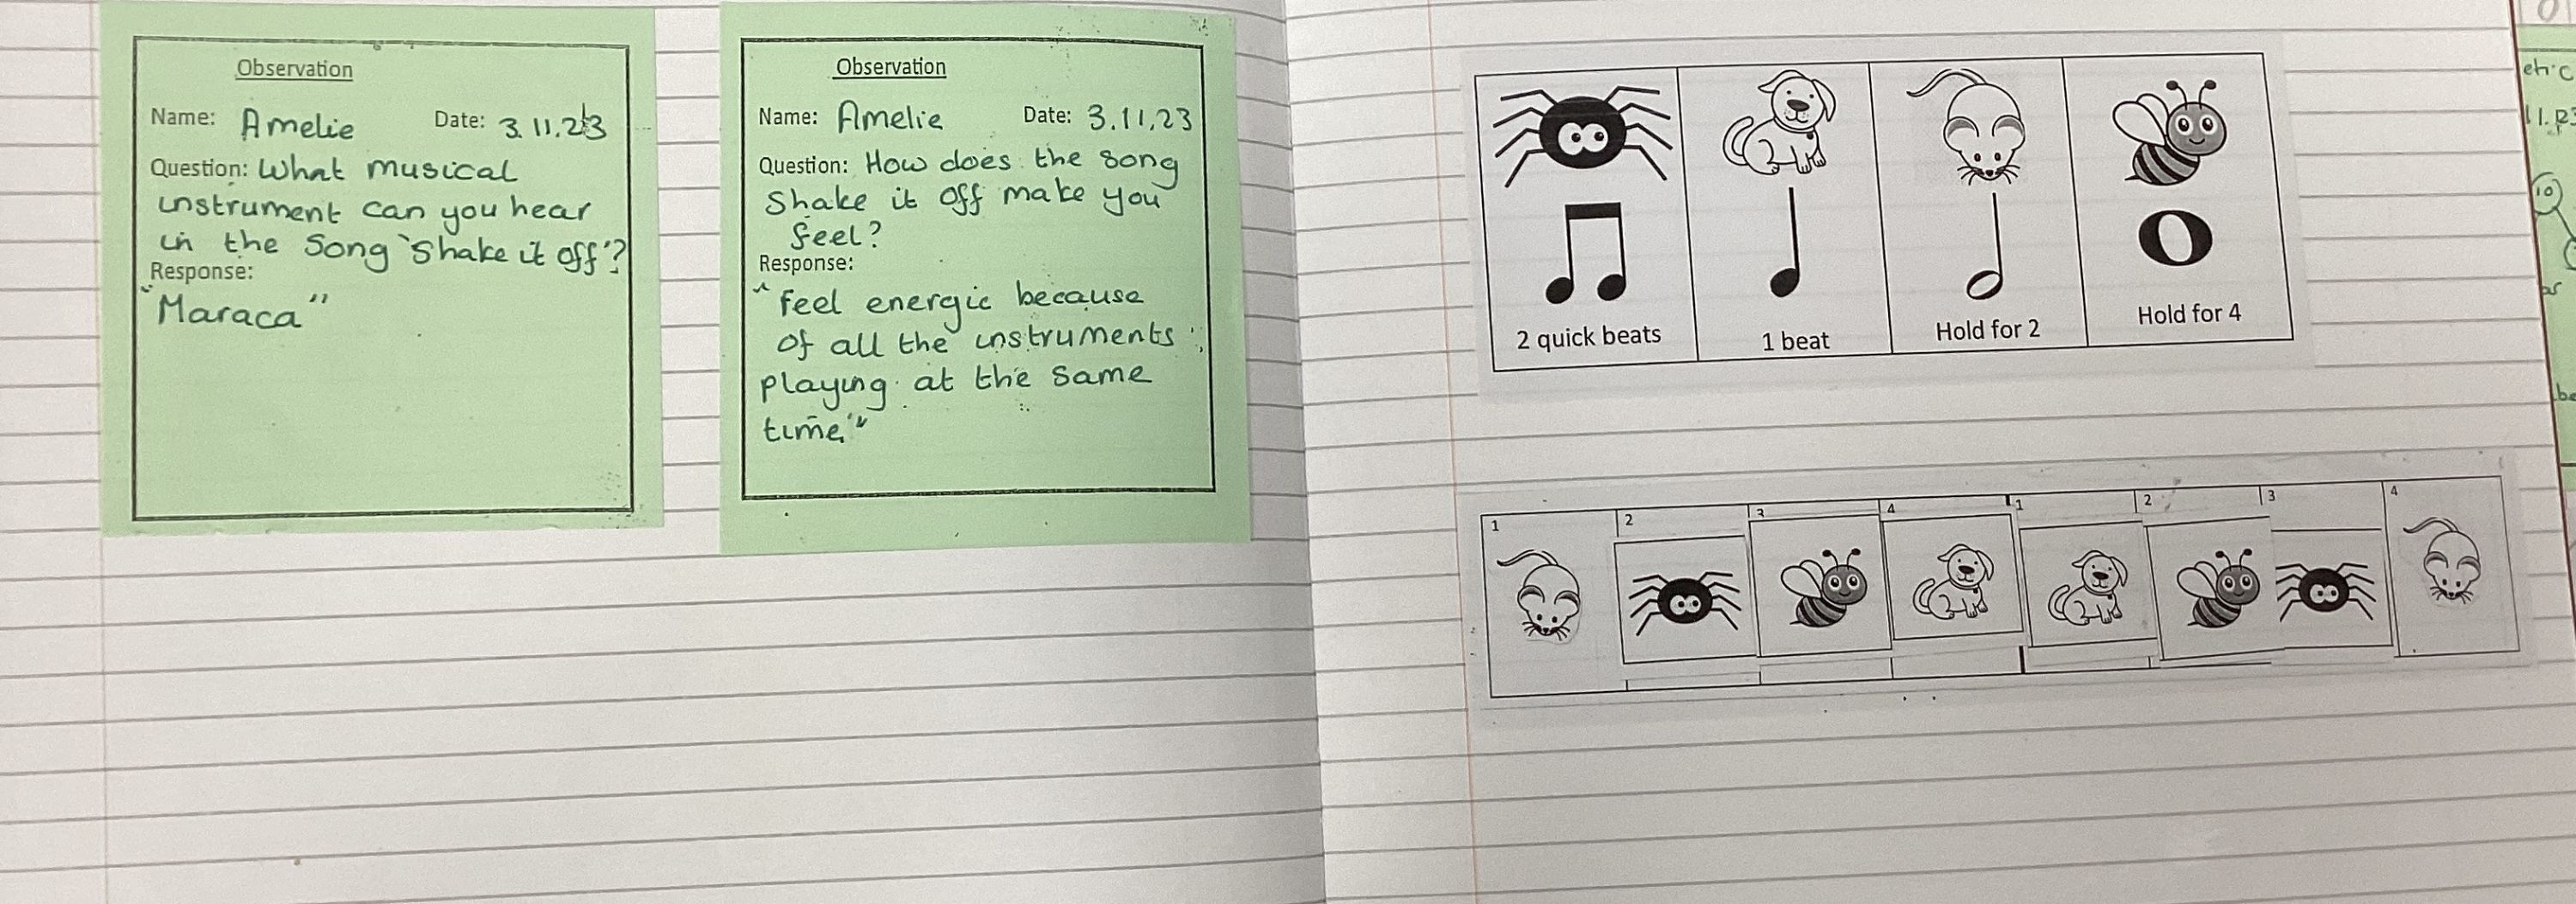 Observation
Name: Amelie Date: 3.11.23
Question: What musical
instrument can you hear
in the song 'Shake it off'?
Response:
"Maraca"
Observation
Name: Amelie Date: 3.11.23
Question: How does the song
Shake it off make you
feel?
Response:
"feel energic because
of all the instruments
playing at the same
time"
2 quick beats
1 beat
Hold for 2
Hold for 4
1 2 3 4 1 2 3 4
10
be